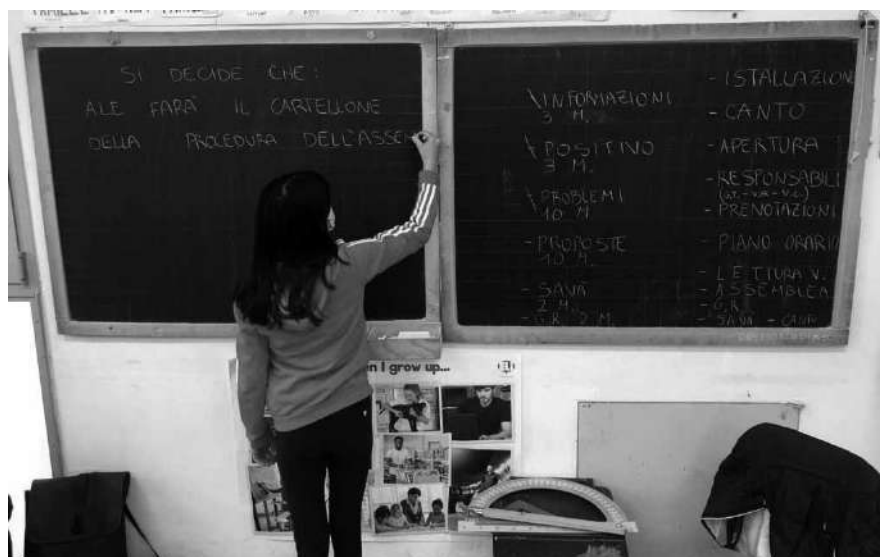 SI DECIDE CHE:
ALE FARÀ IL CARTELLONE
DELLA PROCEDURA DELL'ASSE
INFORMAZIONI
3 M.
POSITIVO
3 M.
PROBLEMI
10 M
- PROPOSTE
10 M.
- SAVA
2 M.
- G.R. 2 M.
- ISTALLAZIONE
- CANTO
- APERTURA
- RESPONSABILI
- PRENOTAZIONI
- PIANO ORARIO
- LETTURA V.
- ASSEMBLEA
- G.R.
- SAVA -
I grow up...